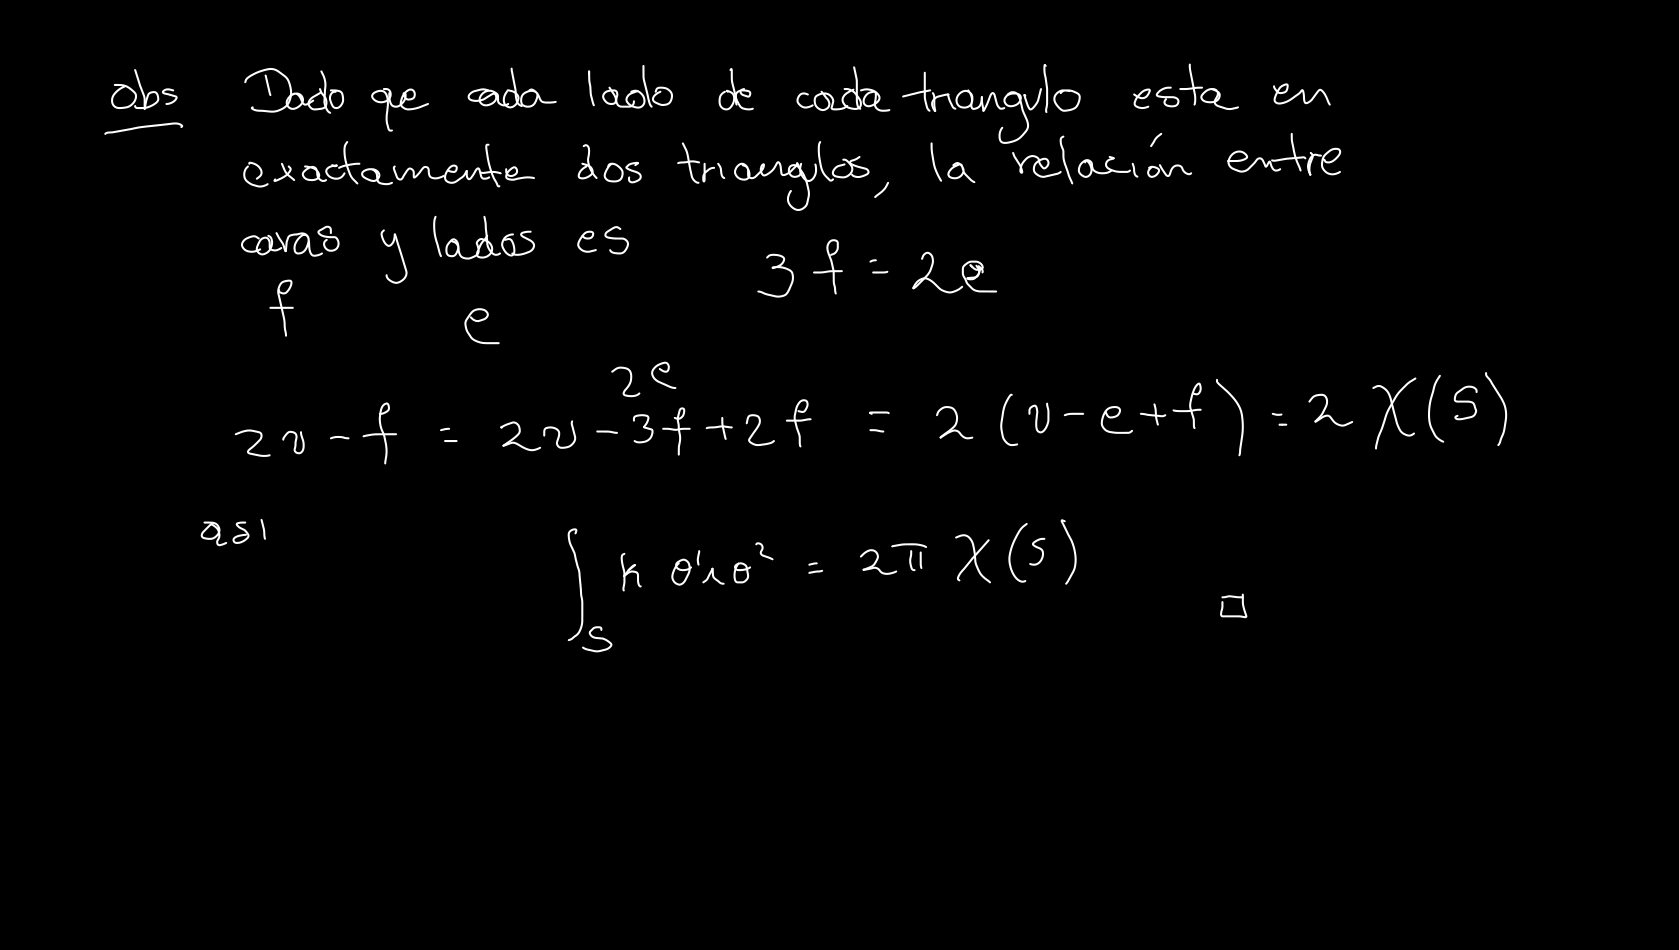 obs Dado que cada lado de cada triangulo esta en
exactamente dos triangulos, la relación entre
caras y lados es 3f = 2e
f e
2e
2v - f = 2v - 3f + 2f = 2(v - e + f) = 2 χ(S)
asi ∫_S k θ¹∧θ² = 2π χ(S)
□